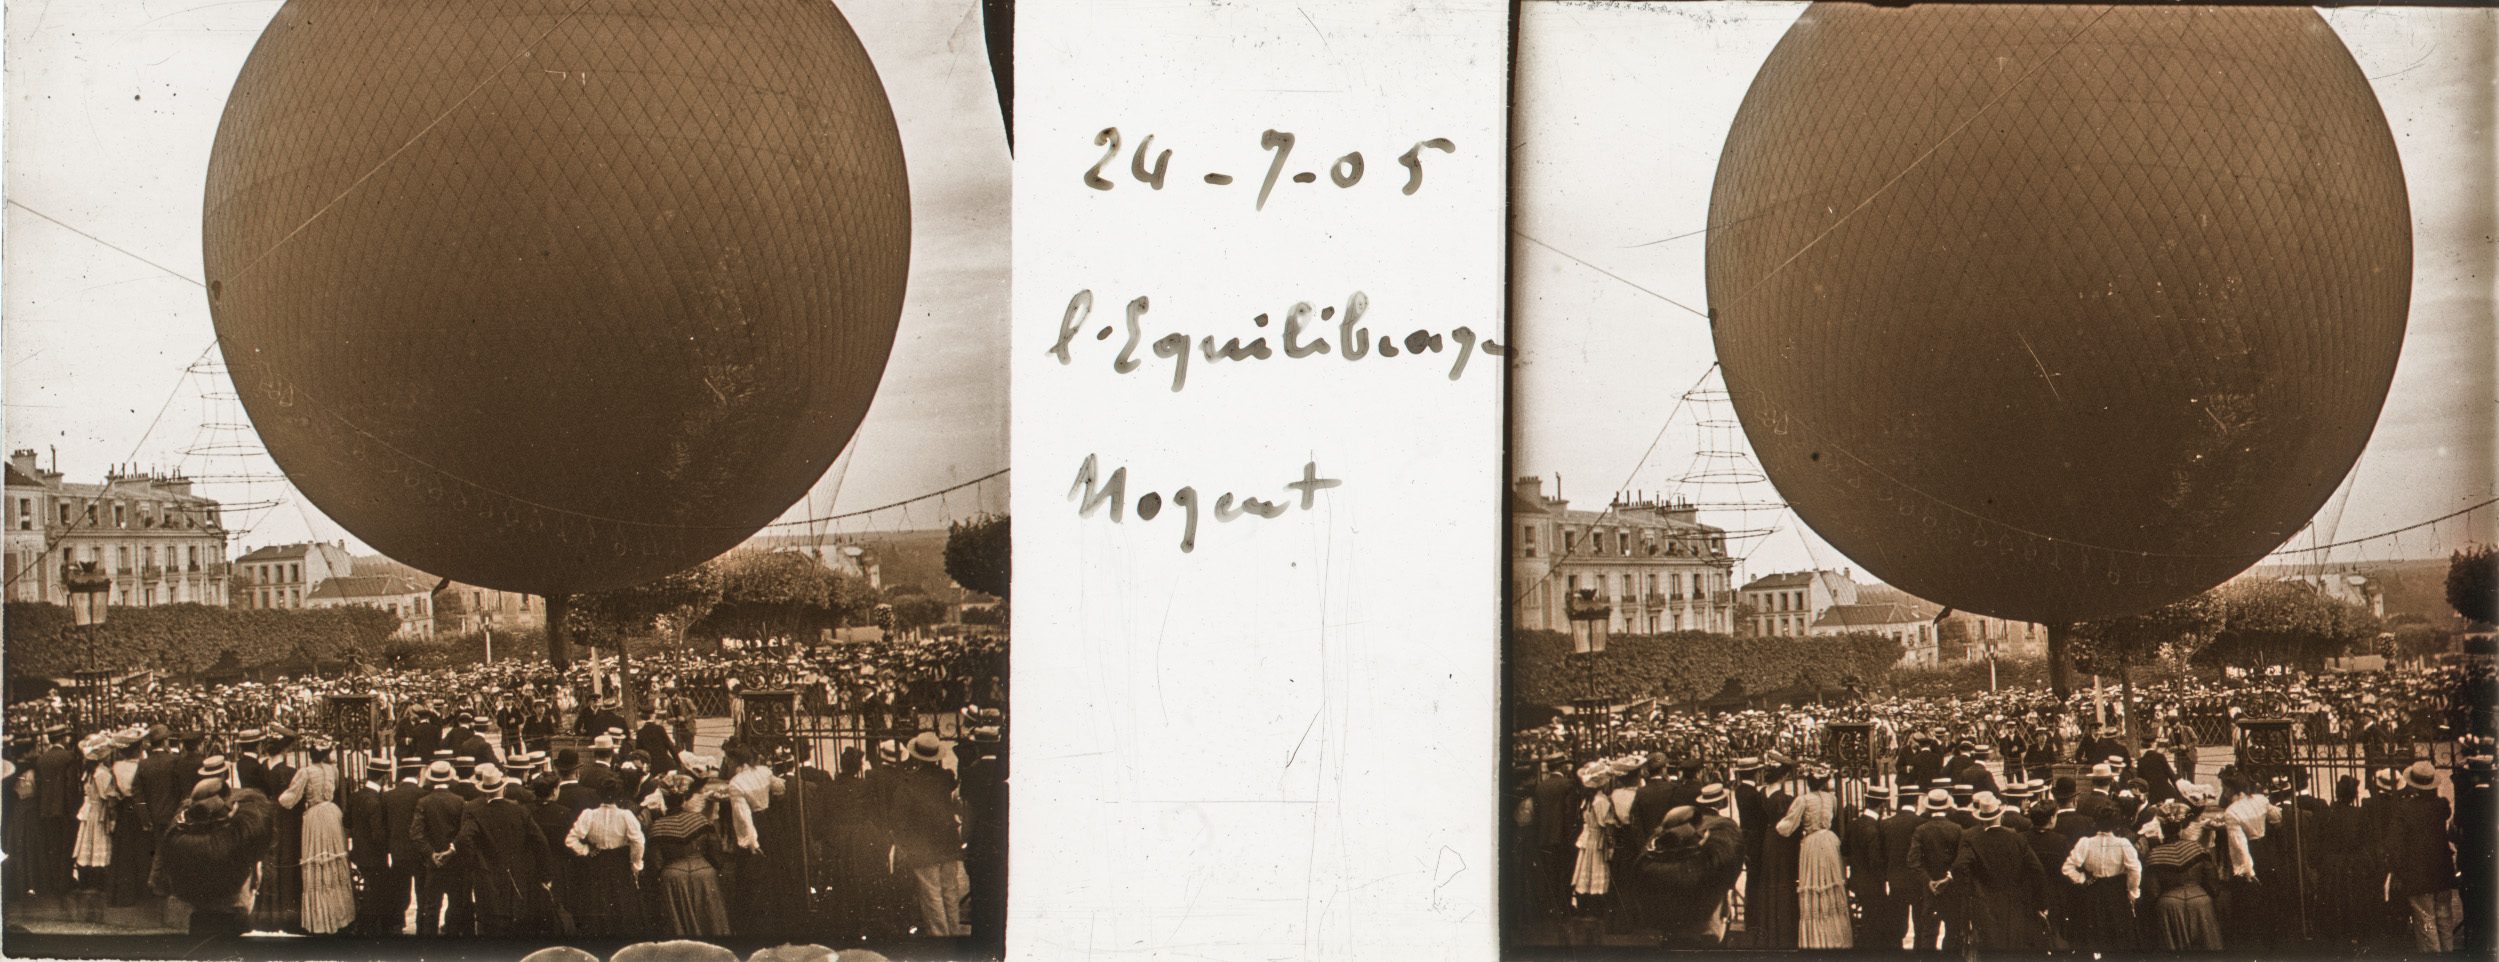 24-7-05
l'Equilibrage
Nogent